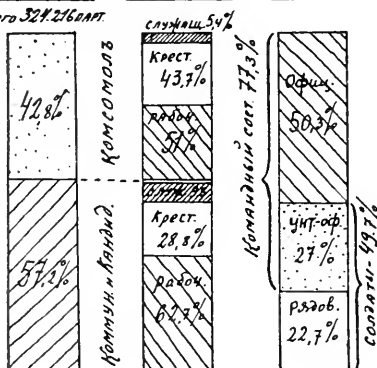 ого 324.216 парт.
42,8%
57,2%
Комсомолъ
Коммун. и Кандид.
служащ. 5,4%
Крест.
43,7%
рабоч.
51%
Крест.
28,8%
рабоч.
62,7%
Командный сост. 77,3%
Офиц.
50,3%
унт-оф.
27%
рядов.
22,7%
солдаты - 49,7%